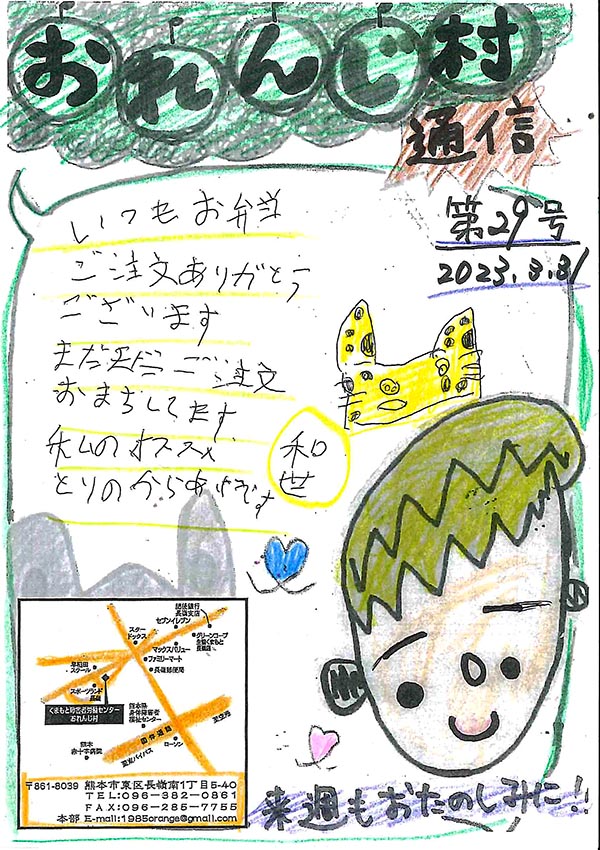 おれんじ村
通信
第29号
2023.3.31
いつもお弁当
ご注文ありがとう
ございます
まだまだご注文
おまちしてます
私のオススメ
とりのからあげです
和世
肥後銀行
長嶺支店
セブンイレブン
スター
ドックス
グリーンコープ
生協くまもと
長嶺店
マックスバリュー
ファミリーマート
長嶺郵便局
早稲田
スクール
スポーツランド
長嶺
くまもと障害者労働センター
おれんじ村
熊本県
身体障害者
福祉センター
至空港
国体道路
ローソン
熊本
赤十字病院
至東バイパス
〒861-8039 熊本市東区長嶺南1丁目5-40
TEL:096-382-0861
FAX:096-285-7755
本部 E-mail:1985orange@gmail.com
来週もおたのしみに!!